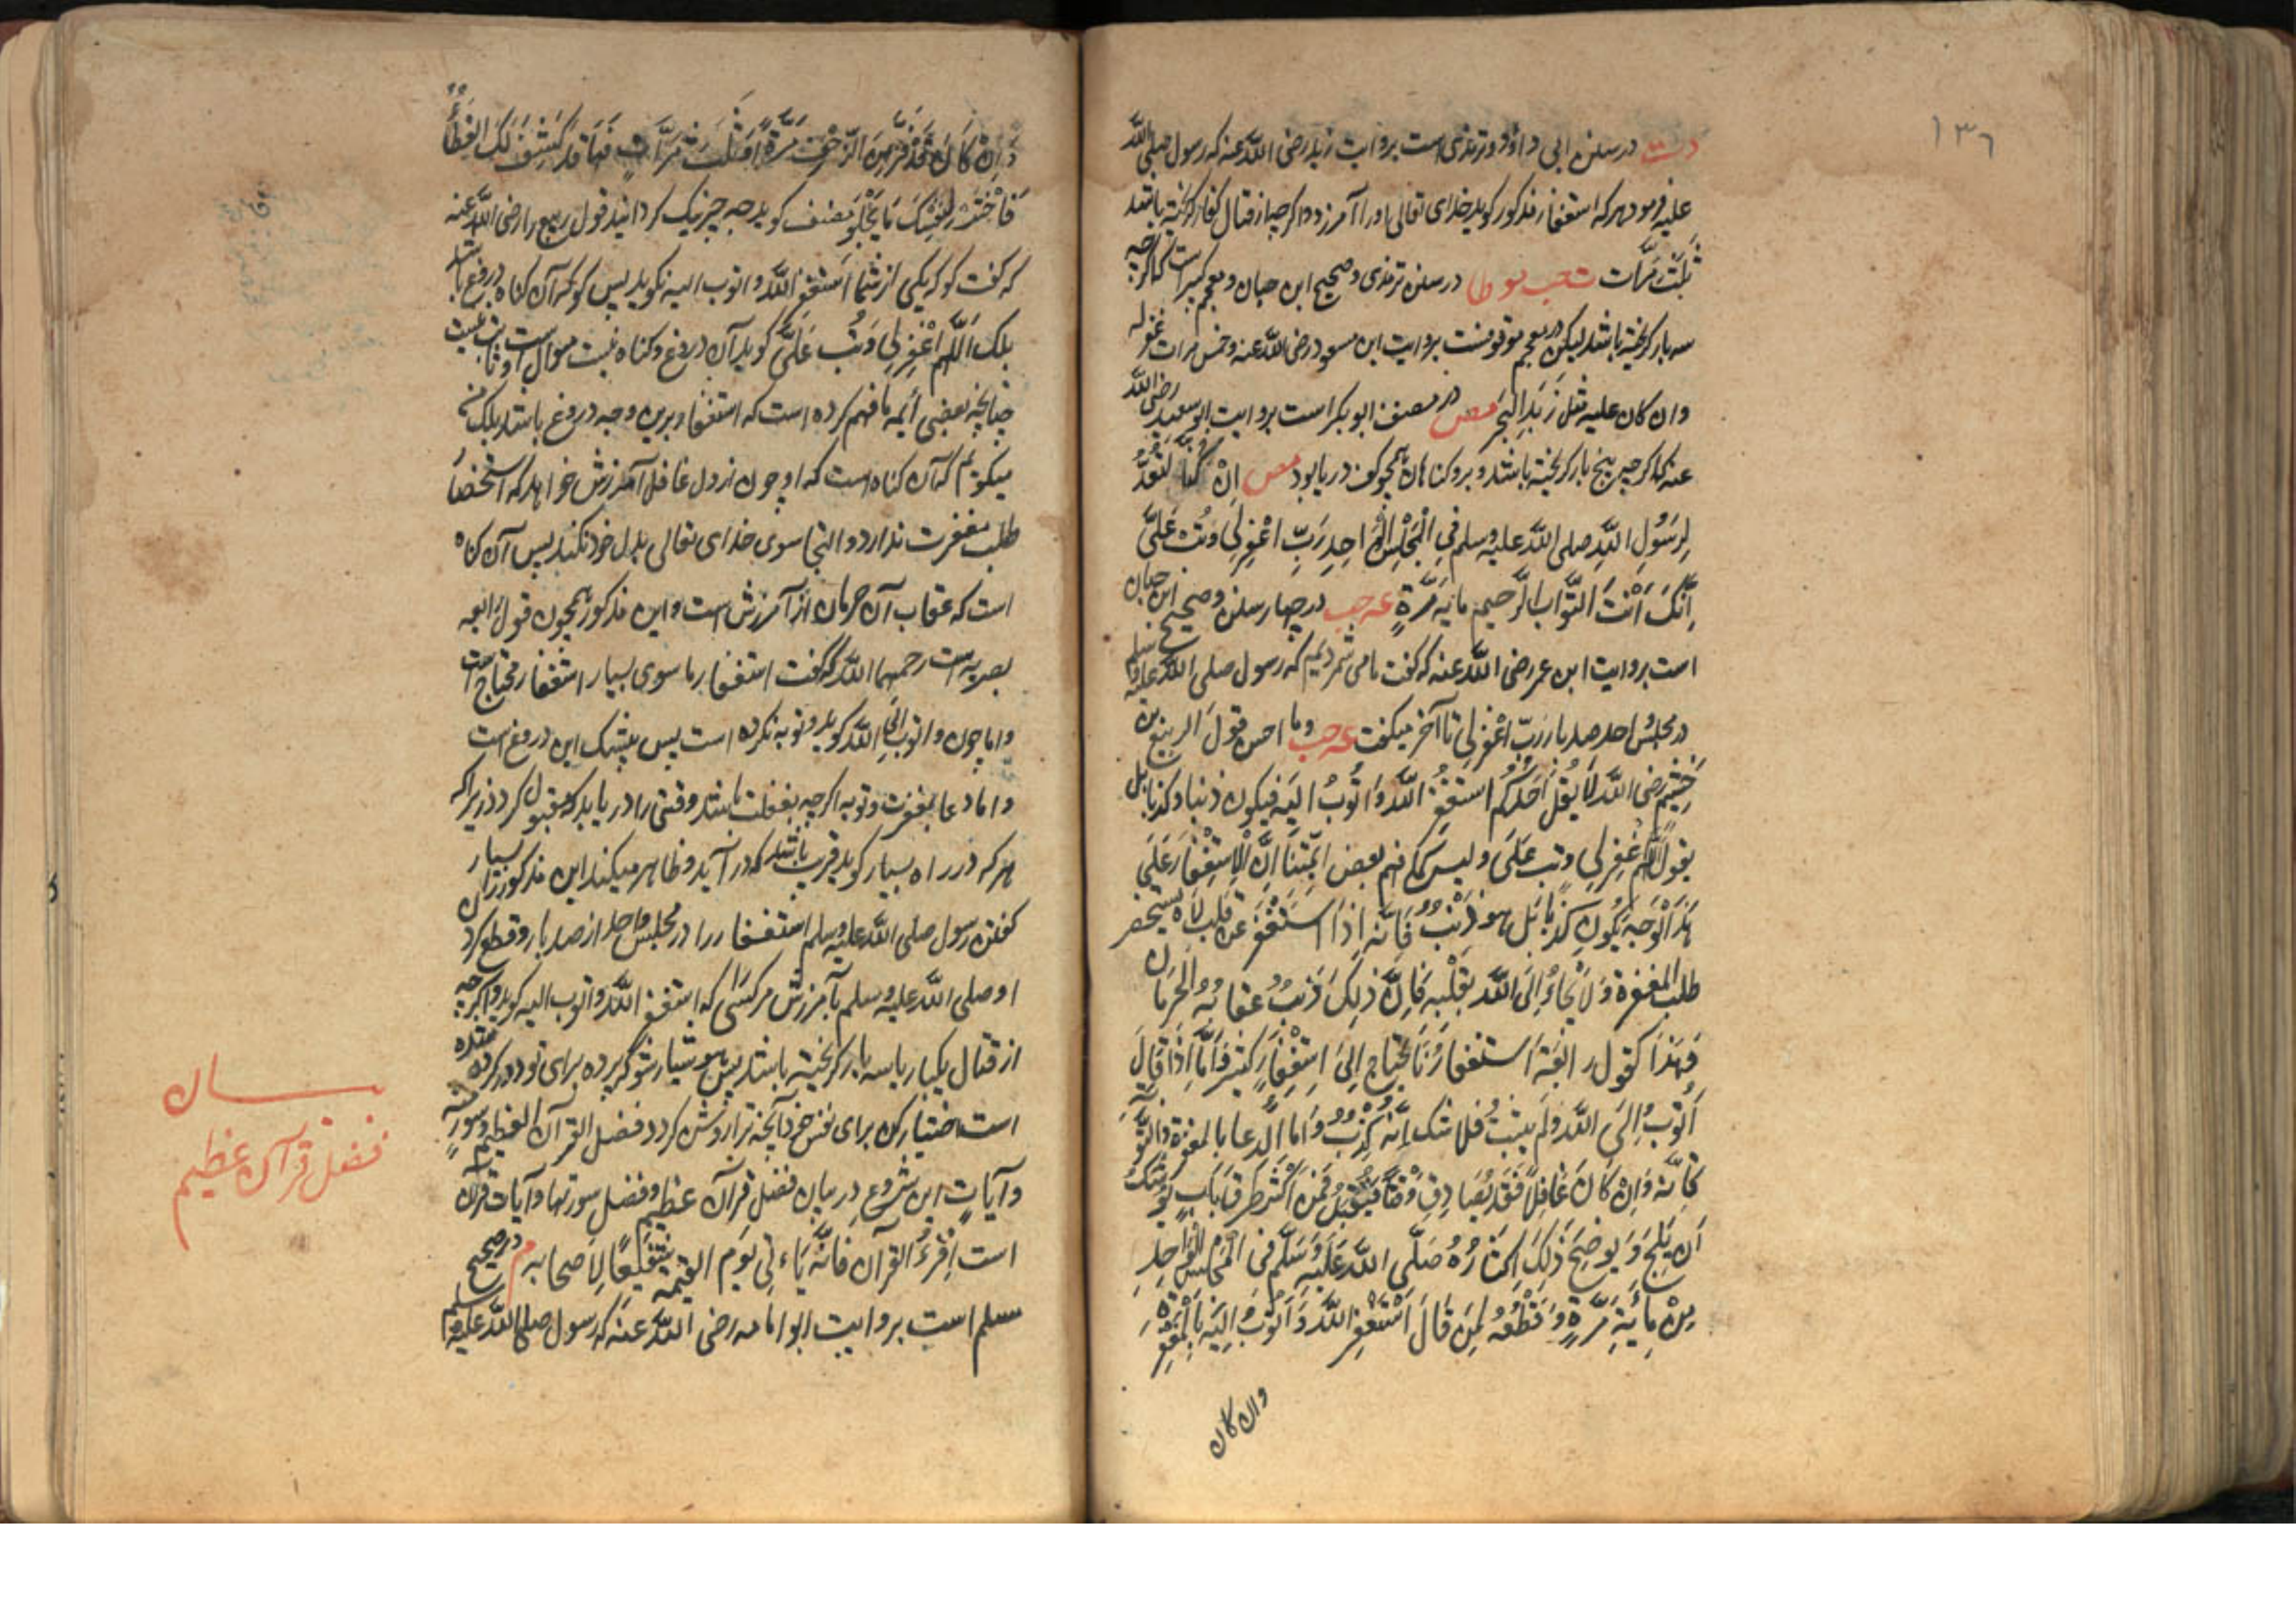 ١٣٦
دت در سنن ابی داؤد و ترمذی است بروایت زید رضی الله عنه که رسول صلی الله
علیه فرمود هر که استغفار مذکور گوید خدای تعالی او را آمرزد و اگرچه از قتال کفار گریخته باشد
ثلث مرات ت حب مو طا در سنن ترمذی و صحیح ابن حبان و معجم کبیر است که اگرچه
سه بار گریخته باشد لیکن در معجم موقوفست بروایت ابن مسعود رضی الله عنه و خمس مرات غفر له
وان کان علیه مثل زبد البحر مص در مصنف ابو بکر است بروایت ابو سعید رضی الله
عنه که اگرچه پنج بار گریخته باشد و برو گناهان همچو کف دریا بود مص اِنْ کُنَّا لَنَعُدُّ
لِرَسُولِ اللهِ صلی الله علیه وسلم فِی الْمَجْلِسِ الْوَاحِدِ رَبِّ اغْفِرْ لِی وَتُبْ عَلَیَّ
اِنَّکَ اَنْتَ التَّوَّابُ الرَّحِیم مایة مَرَّةٍ عه حب در چهار سنن و صحیح ابن حبان
است بروایت ابن عمر رضی الله عنه که گفت ما می شمردیم که رسول صلی الله علیه وسلم
در مجلس واحد صد بار رَبِّ اغْفِرْ لِی تا آخر میگفت عه حب وما احسن قول الربیع بن
خثیم رضی الله لَا یَقُلْ اَحَدُکُمْ اَستغفرُ الله وَاَتُوبُ اِلیه فیکون ذنبا وکذبا بل
یقول اللّٰهم اغْفِر لِی وتب عَلَیَّ ولیس کما فهم بعض ائمّتنا اَنَّ الاِسْتِغْفَار عَلَی
هٰذَا الْوَجه یَکُون کذبا بَل هو ذَنْبٌ فَاِنَّه اِذَا اسْتَغْفَر عَن قلبٍ لَاهٍ لا یستحضر
طلب المغفرة وَلَا یَلْجَاُ اِلَی الله بِقَلْبِه فَاِنَّ ذٰلِکَ ذَنْبٌ عقابُهُ الحرمان
فَهٰذَا کَقَول رابعَة اَستغفارُنَا یَحتَاج اِلَی اِستِغْفَارٍ کثیر فَاَمَّا اِذَا قَالَ
اَتُوبُ اِلَی الله ولم یتب فلا شک اِنَّه کِذْبٌ وَاَما الدعا بالمغفرة والتوبة
فَاِنَّه وَاِنْ کَانَ غَافِلًا فَقَد یُصَادِف وَقْتًا فَیُقْبَلُ فَمَن اَکْثَرَ طرق البَاب یُوشک
اَن یَلِجَ وَیوضِحَ ذٰلِکَ اِکْثَارُهُ صَلَّی الله عَلَیه وَسَلَّم فی المجلس الْوَاحِدِ
مِنْ مِائَة مَرَّةٍ وَقَطْعُهُ لِمَن قَالَ اَسْتَغْفِر الله وَاَتُوبُ اِلَیه بِالْمَغفرة
وان کان
وَاِنْ کَانَ قَد فَرَّ مِنَ الزَّحْف مَرَّة اَوْ ثَلٰث مَرَّاتٍ فَهَا قَد کَشَفَ لَکَ الغِطَآءُ
فَاخْتَر لِنَفْسِکَ مَا یَحْلُو مصنف گوید چه چیز نیک گردانید قول ربیع را رضی الله عنه
که گفت گو که یکی از شما استغفر الله و اتوب الیه نگوید پس گو که آن گناه دروغ باشد
بلکه اَللّٰهُم اغْفِرْ لِی وَتُب عَلَیَّ گوید آن دروغ و گناه نیست سوال است
چنانچه بعضی ائمه ما فهم کرده است که استغفار برین وجه دروغ باشد بلکه من
میگویم که آن گناه است که او چون از دل غافل آمرزش خواهد که استحضار
طلب مغفرت ندارد و التجا سوی خدای تعالی بدل خود نکند پس آن گناه
است که عقاب آن حرمان از آمرزش است و این مذکور همچون قول رابعه
بصریه است رحمهما الله که گفت استغفار ما سوی بسیار استغفار محتاج است
و اما چون و اتوب الی الله گوید و توبه نکرده است پس بیشک این دروغ است
و اما دعا بمغفرت و توبه اگرچه بغفلت باشد وقتی را دریابد که مقبول گردد زیراکه
هر که در راه بسیار کوبد قریب باشد که در آید و ظاهر میکند این مذکور را بسیار
گفتن رسول صلی الله علیه وسلم استغفار را در مجلس واحد از صد بار و قطع کرد
او صلی الله علیه وسلم بآمرزش مر کسی که استغفر الله و اتوب الیه گوید و اگرچه
از قتال یکبار یا سه بار گریخته باشد پس هوشیار شو که پرده برای تو دور کرده شده
است اختیار کن برای نفس خود آنچه ترا روشن گردد فضل القرآن العظیم وسورة
وآیاتٍ این شروع در بیان فضل قرآن عظیم و فضل سورتها و آیات قرآن
است اِقْرَءُ القرآن فَاِنَّه یَاْتِی یَوم القیمة شَفِیعًا لِاَصحَابِه م در صحیح
مسلم است بروایت ابو امامه رضی الله عنه که رسول صلی الله علیه وسلم
بیان
فضل قرآن عظیم